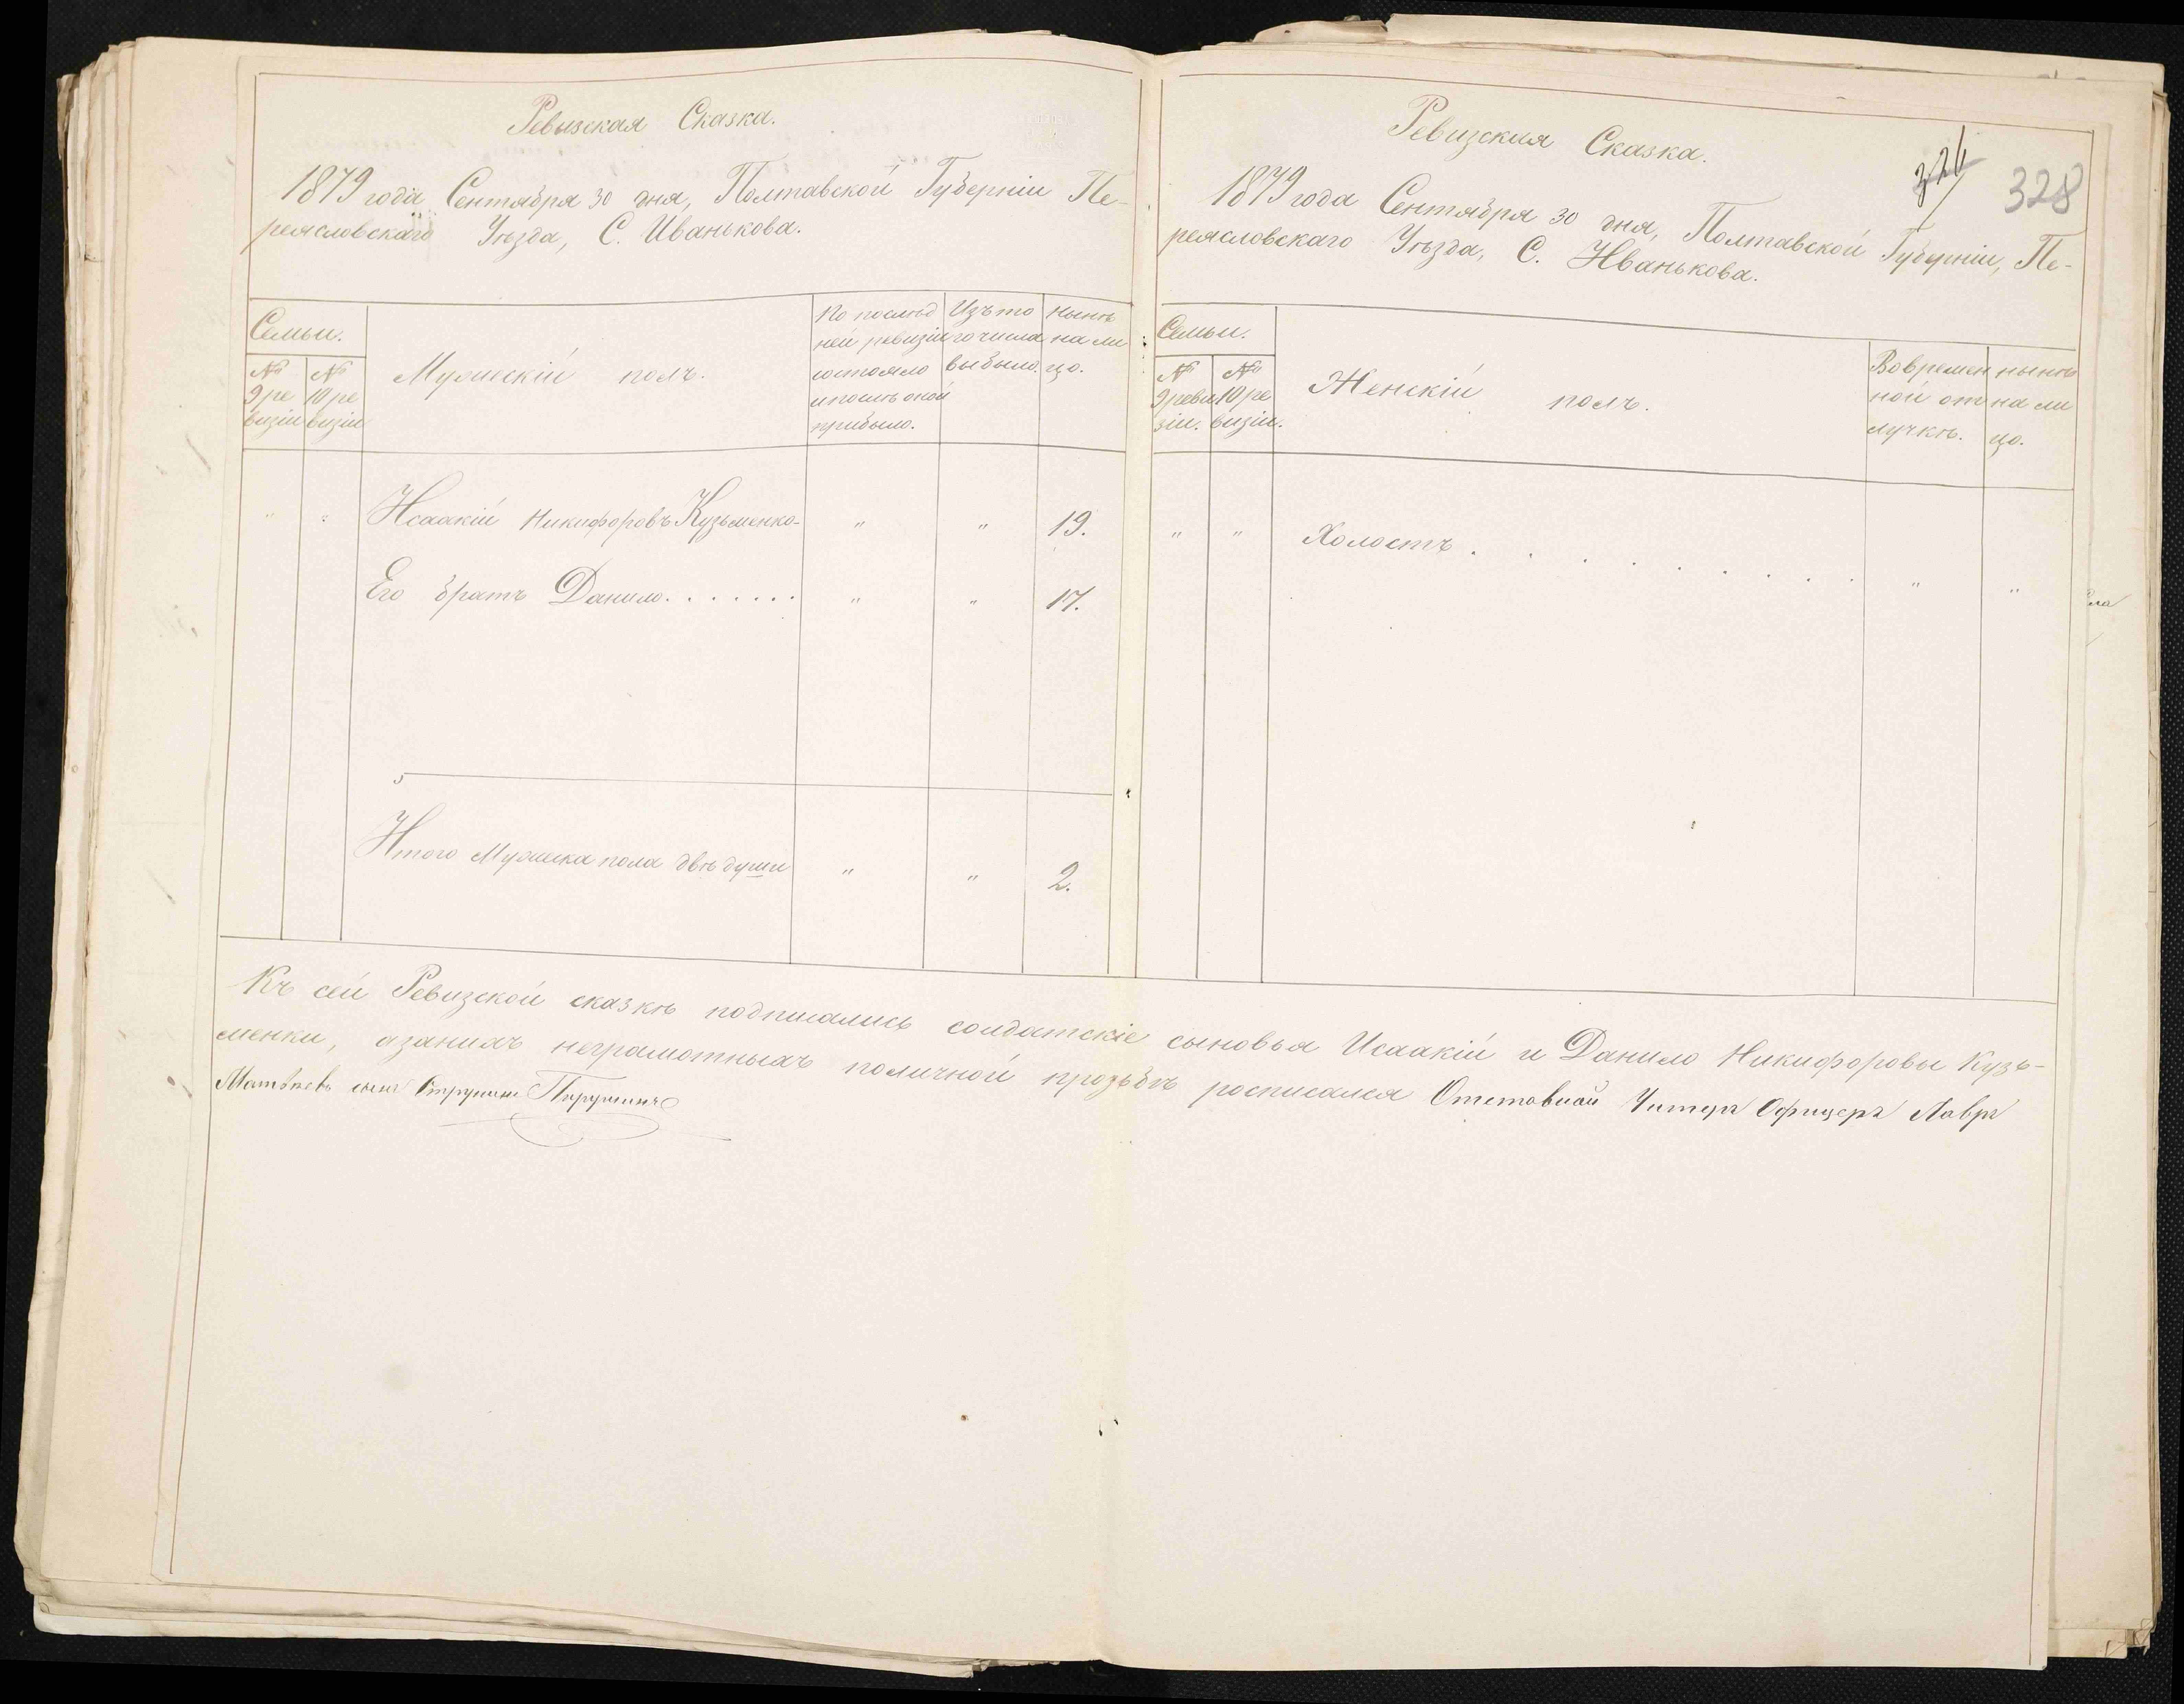 Ревизская Сказка.
1879 года Сентября 30 дня, Полтавской Губерніи Пе-
реясловскаго Уѣзда, С. Иванькова.
Семьи.
№ 9 ре визіи
№ 10 ре визіи
Мужескій полъ.
По послѣд
ней ревизіи
состояло
и послѣ оной
прибыло.
Изъ то
го числа
выбыло.
Нынѣ
на ли
цо.
" " Исаакій Никифоровъ Кузьменко- " " 19.
Его братъ Данило....... " " 17.
Итого Мужеска пола двѣ души " " 2.
Ревизская Сказка.
324 328
1879 года Сентября 30 дня, Полтавской Губерніи, Пе-
реясловскаго Уѣзда, С. Иванькова.
Семьи.
№ 9 реви зіи.
№ 10 ре визіи.
Женскій полъ.
Вовремен
ной от
лучкѣ.
нынѣ
на ли
цо.
" " Холостъ......... " "
Къ сей Ревизской сказкѣ подписались солдатскіе сыновья Исаакій и Данило Никифоровы Кузь-
менки, а заних неграмотныхъ поличной прозьбѣ росписался Отставной Унтеръ Офицеръ Лавръ
Матвѣевъ сынъ